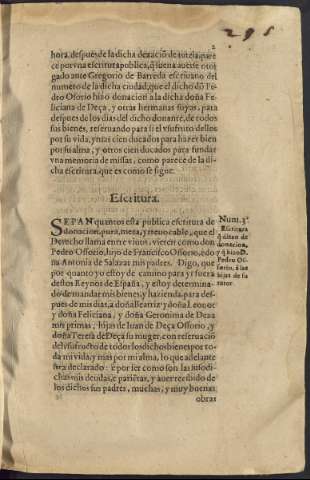 295
2
hora, despues de la dicha dexacion de tutela, pare
ce por vna escritura publica, q̃ suena auerse otor
gado ante Gregorio de Barreda escriuano del
numero de la dicha ciudad, que el dicho dõ Pe
dro Ossorio hizo donacion a la dicha doña Fe
liciana de Deça, y otras hermanas suyas, para
despues de los dias del dicho donante, de todos
sus bienes, reseruando para si el vsufruto dellos
por su vida, y otras cien ducados para hazer bien
por su alma, y otros cien ducados para fundar
vna memoria de missas, como parece de la di-
cha escritura, que es como se sigue.
Escritura.
SEPAN quantos esta publica escritura de
donacion, pura, mera, y irreuocable, que el
Derecho llama entre viuos, vieren como don
Pedro Ossorio, hijo de Francisco Ossorio, y do
ña Antonia de Salazar mis padres. Digo, que
por quanto yo estoy de camino para yr fuera
destos Reynos de España, y estoy determina-
do de mandar mis bienes y hazienda, para des-
pues de mis dias, a doña Beatriz y doña Leonor
y doña Feliciana, y doña Geronima de Deza
mis primas, hijas de Iuan de Deça Ossorio, y
doña Teresa de Deça su muger, con reseruacio
del vsufructo de todos los dichos bienes por to-
da mi vida, y mas por mi alma, lo que adelante
sera declarado: e por ser como son las susodi-
chas mis deudas, e pariẽtas, y auer recibido de
los dichos sus padres, muchas, y muy buenas
obras
Num. 3º
Escritura
q̃ dizen de
donacion,
y q̃ hizo D.
Pedro Os-
sorio, a las
hijas de su
tutor.